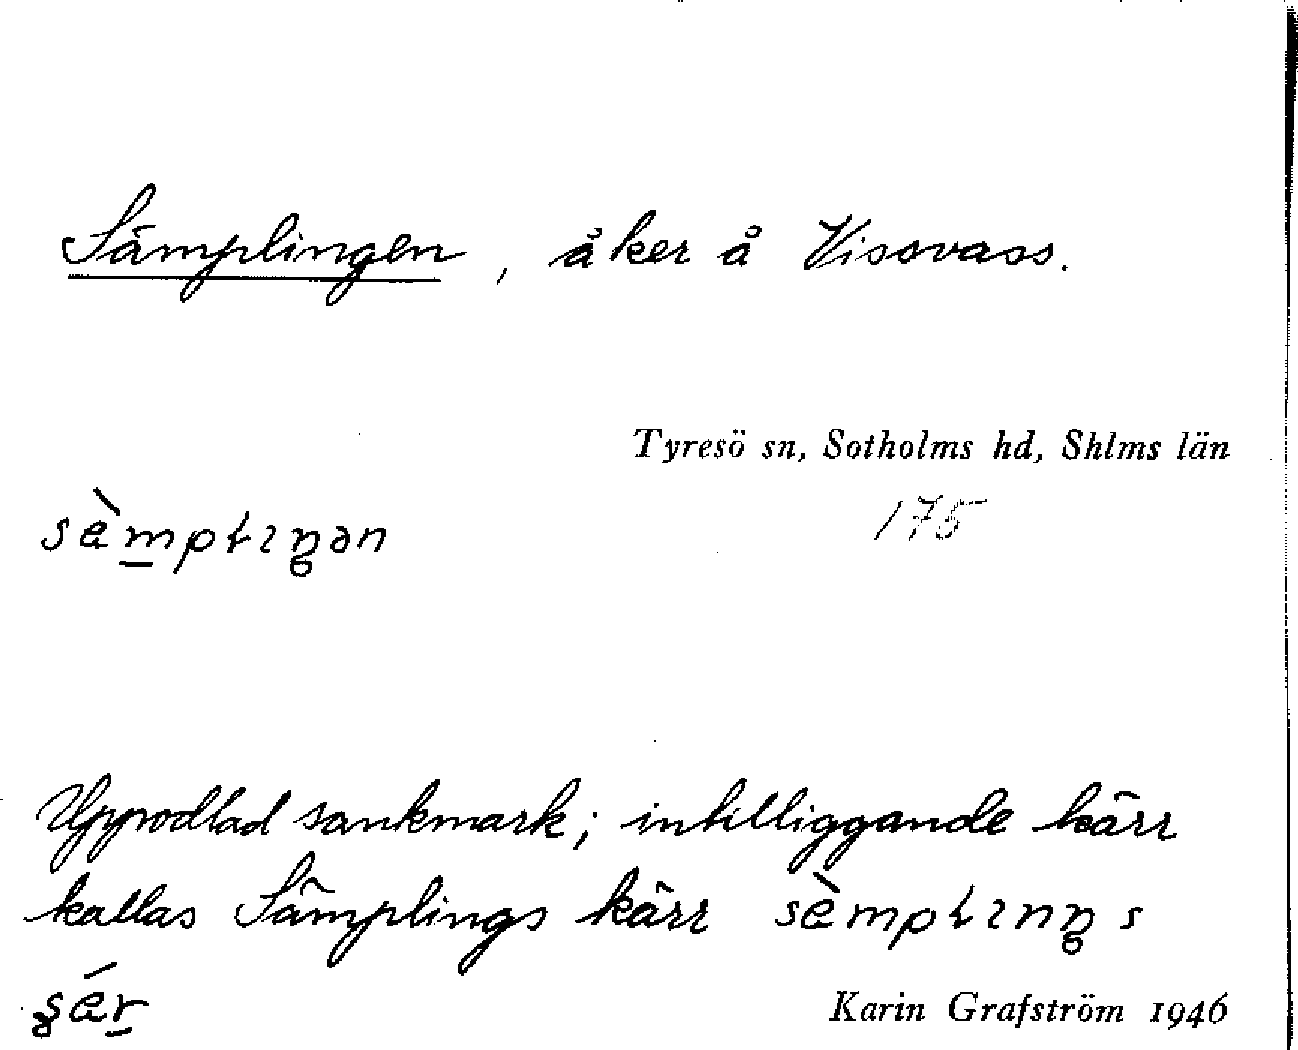 Sämplingen, åker å Vissvass.
Tyresö sn, Sotholms hd, Shlms län
175
Uppodlad sankmark; intilliggande kärr
kallas Sämplings kärr
Karin Grafström 1946